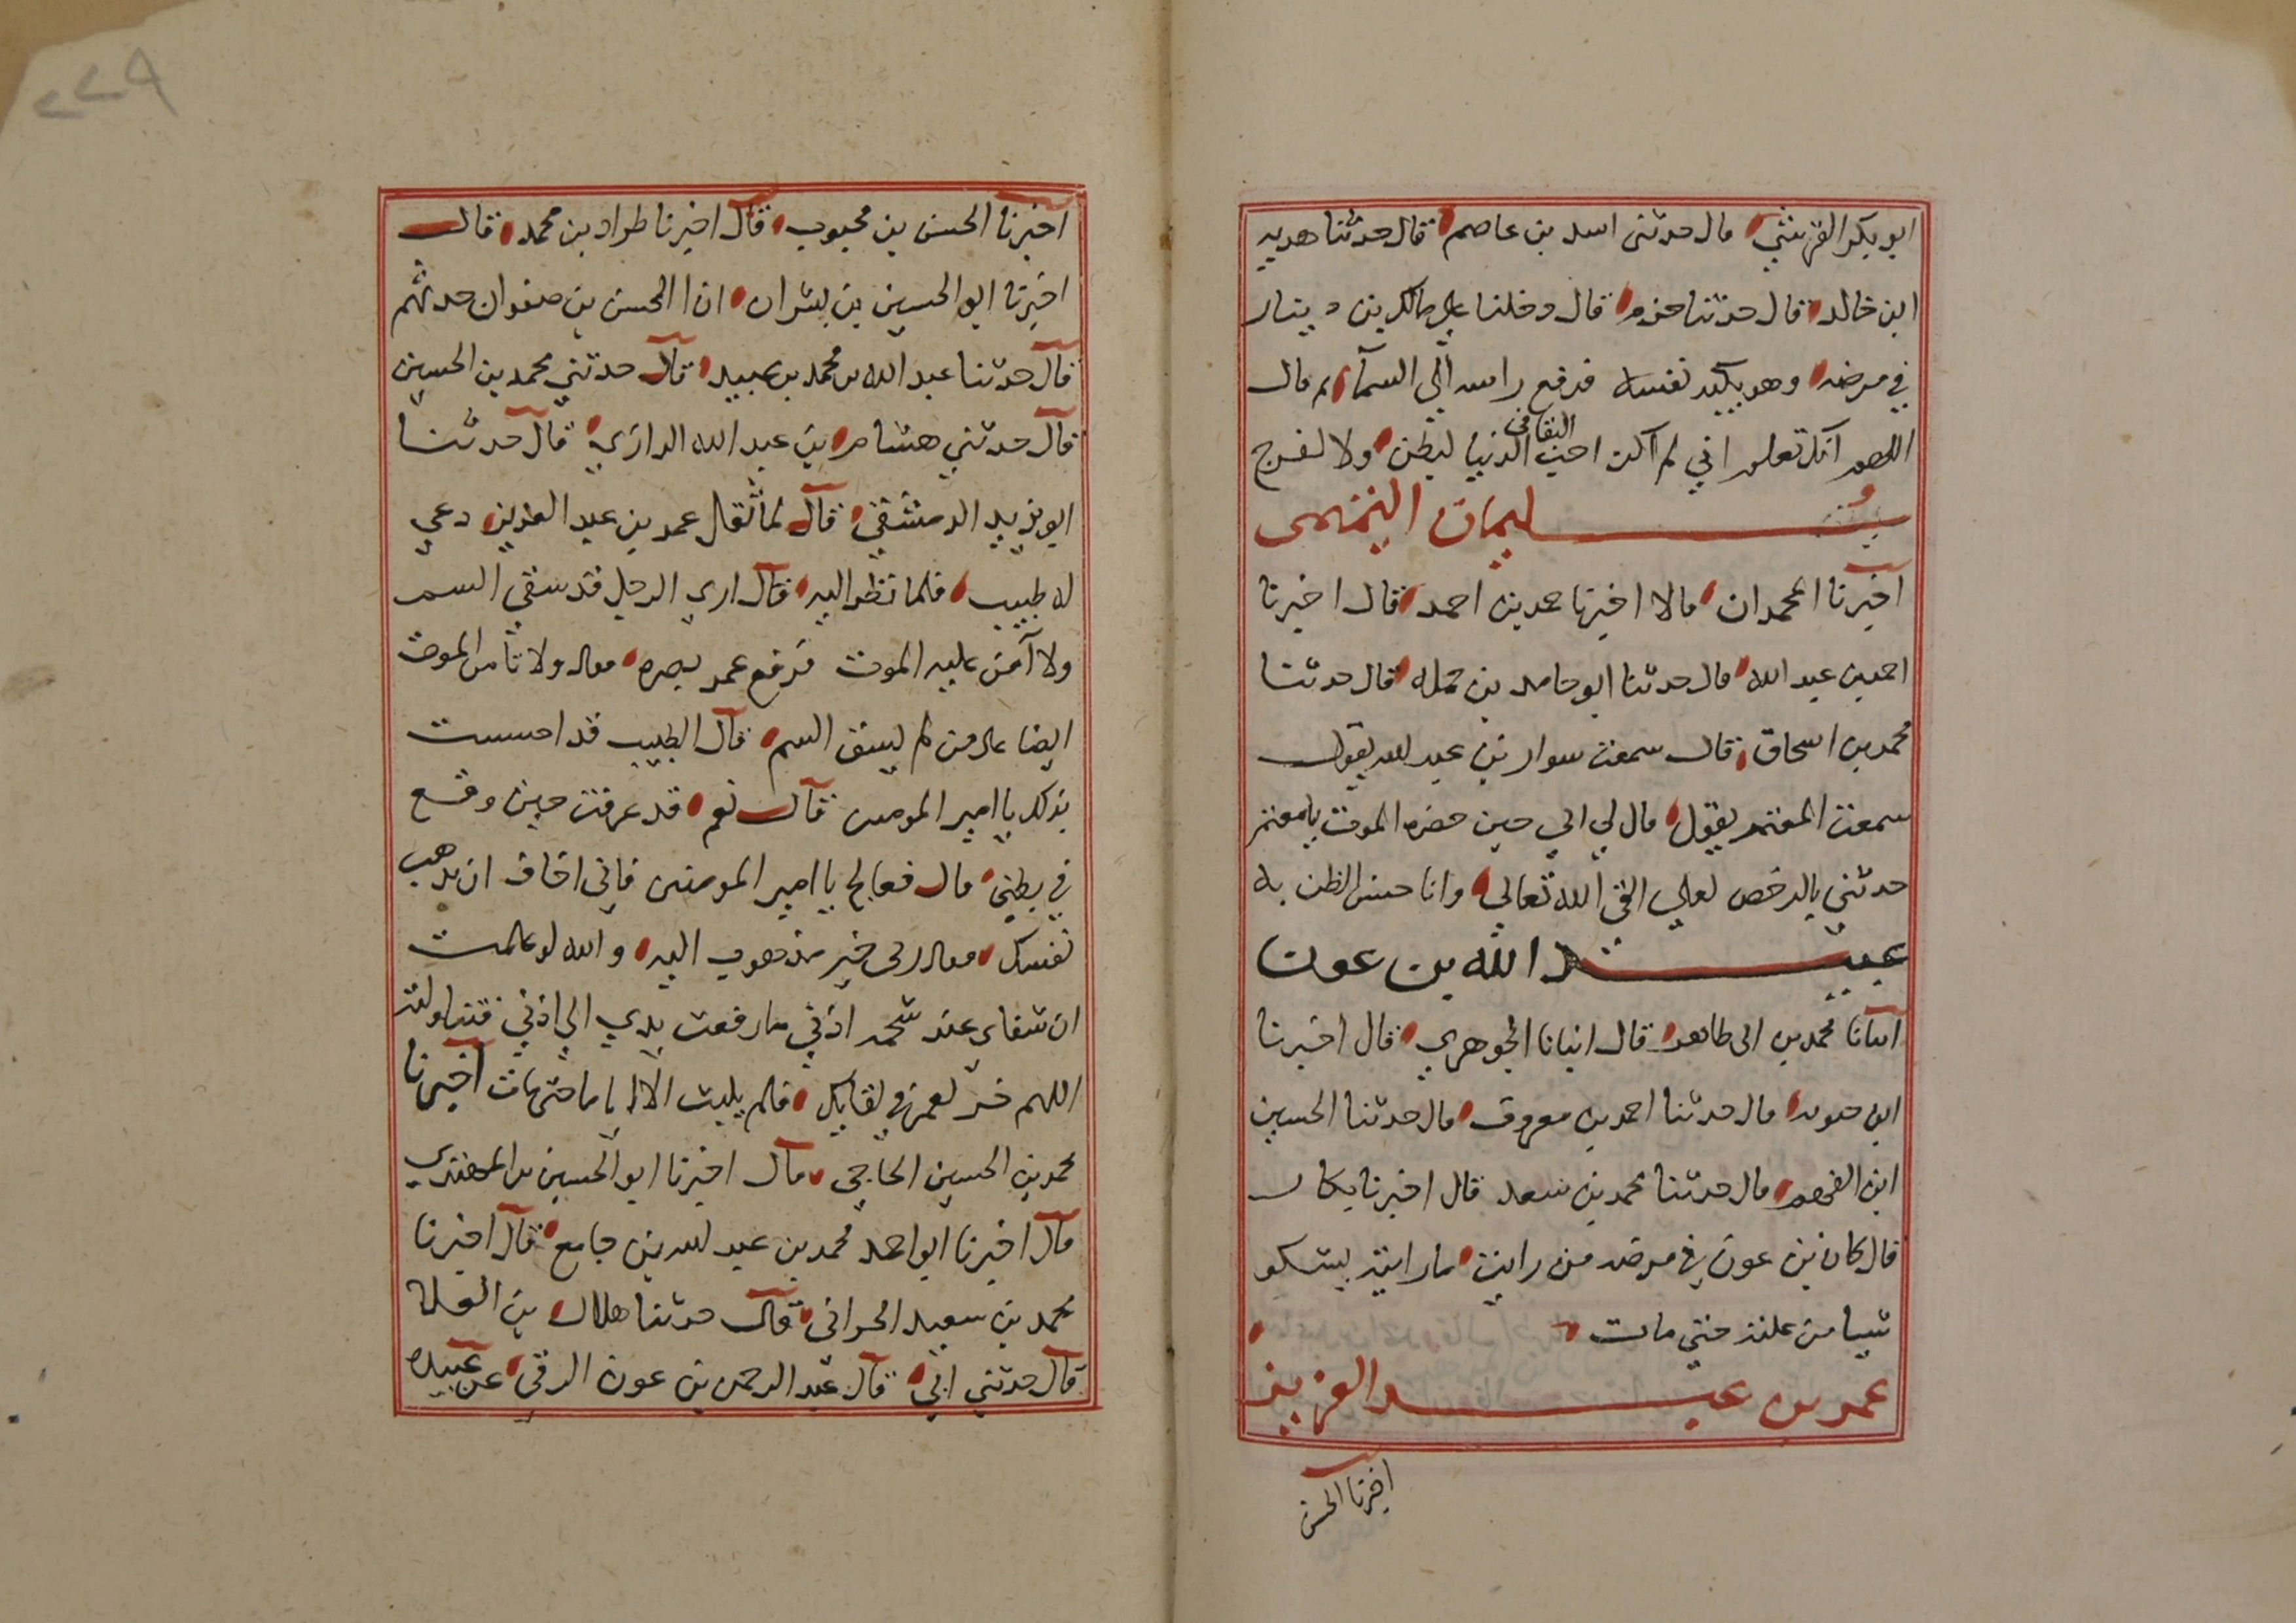 ابو بكر القرشي قال حدثني اسد بن عاصم قال حدثنا هدبه
ابن خالد قال حدثنا حزم قال دخلنا علي مالك بن دينار
في مرضه وهو يكيد نفسه فرفع راسه الي السمآء ثم قال
اللهم انك تعلم اني لم اكن احب البقا في الدنيا لبطن ولا لفرج
سليمان التيمى
اخبرنا المحمدان قالا اخبرنا حمد بن احمد قال اخبرنا
احمد بن عبد الله قال حدثنا ابو حامد بن جبله قال حدثنا
محمد بن اسحاق قال سمعت سوار بن عبد الله يقول
سمعت المعتمر يقول قال لي ابي حين حضره الموت يا معتمر
حدثني بالرخص لعلي القى الله تعالي وانا حسن الظن به
عبد الله بن عون
انبانا محمد بن ابى طاهر قال انبانا الجوهري قال اخبرنا
ابن حيويه قال حدثنا احمد بن معروف قال حدثنا الحسين
ابن الفهم قال حدثنا محمد بن سعد قال اخبرنا بكار
قال كان بن عون في مرضه من رايت ما رايته يشكو
شيا من علته حتي مات
عمر بن عبد العزيز
اخبرنا الحسن
٢٢٩
اخبرنا الحسن بن محبوب قال اخبرنا طراد بن محمد قال
اخبرنا ابو الحسين بن بشران ان ا الحسن بن صفوان حدثهم
قال حدثنا عبد الله بن محمد بن عبيد قال حدثني محمد بن الحسين
قال حدثني هشام بن عبد الله الرازي قال حدثنا
ابو يزيد الدمشقي قال لما ثقل عمر بن عبد العزيز دعي
له طبيب فلما نظر اليه قال اري الرجل قد سقي السم
ولا آمن عليه الموت فرفع عمر بصره فقال ولا تامن الموت
ايضا على من لم يسق السم قال الطبيب قد احسست
بذلك يا امير المومنين قال نعم قد عرفت حين وقع
في بطني قال فعالج يا امير المومنين فاني اخاف ان تذهب
نفسك فقال ربى خير مذهوب اليه والله لو علمت
ان شفاى عند شحمة اذني ما رفعت يدي الي اذني فتناولته
اللهم خر لعمر في لقايك فلم يلبث الا اياما حتى مات اخبرنا
محمد بن الحسين الحاجي قال اخبرنا ابو الحسين بن المهتدي
قال اخبرنا ابو احمد محمد بن عبد الله بن جامع قال اخبرنا
محمد بن سعيد الحراني قال حدثنا هلال بن العلا
قال حدثني ابي قال عبد الرحمن بن عون الرقي عن عبيده